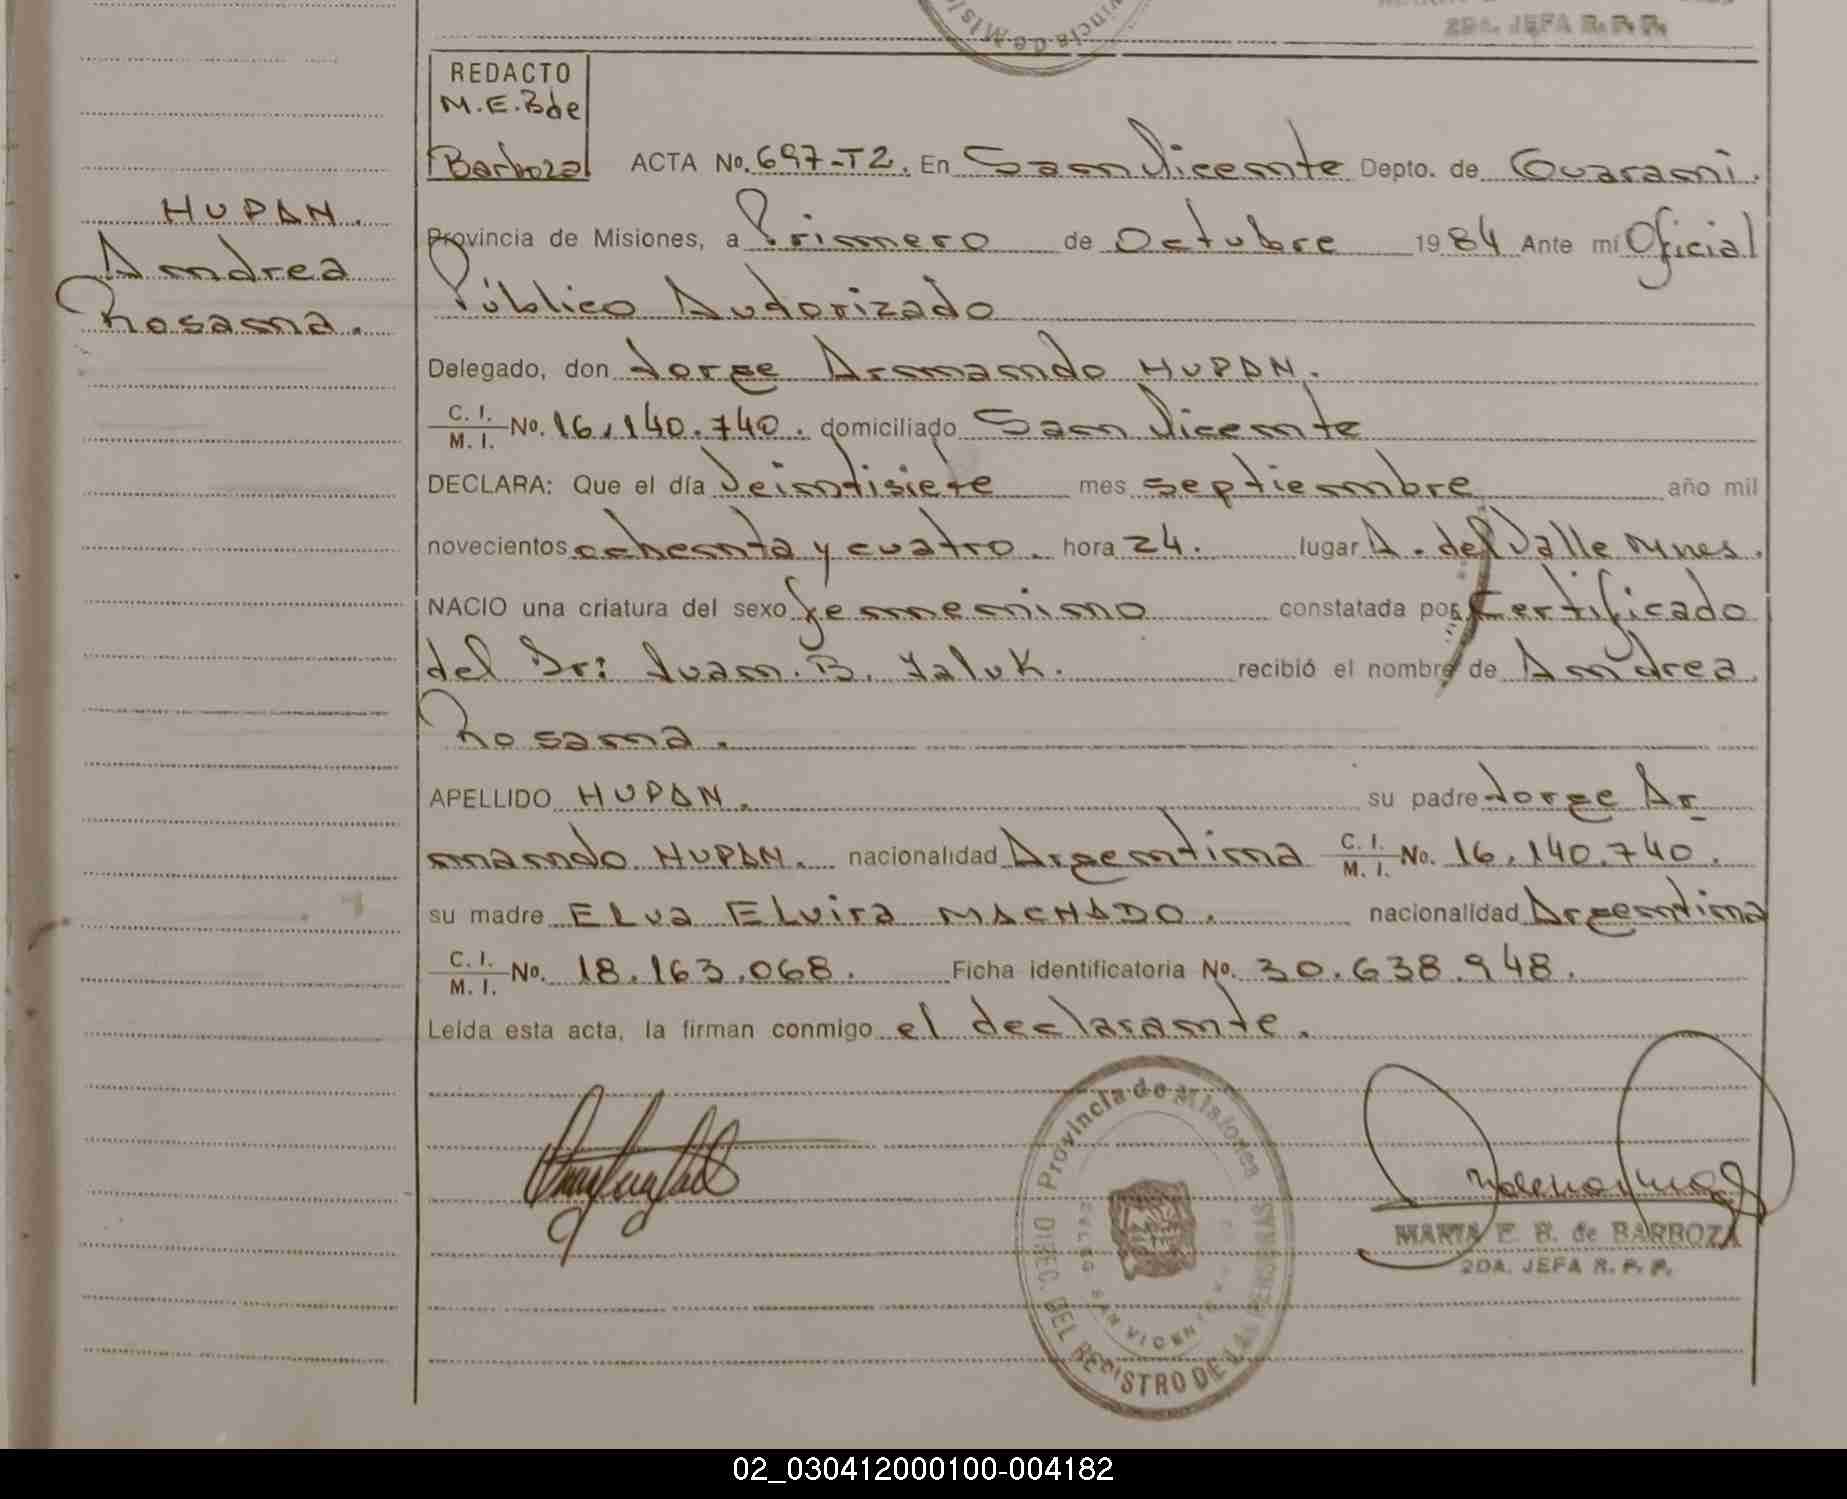 2DA. JEFA R.P.P.
Provincia de Misiones
REDACTO
M.E.B de
Barboza
ACTA No. 697-T2. En San Vicente Depto. de Guarani.
HUPAN.
Andrea
Rosana.
Provincia de Misiones, a Primero de Octubre 1984 Ante mí Oficial
Público Autorizado
Delegado, don Jorge Armando HUPAN.
C. I. / M. I. No. 16.140.740. domiciliado San Vicente
DECLARA: Que el día Veintisiete mes septiembre año mil
novecientos ochenta y cuatro. hora 24. lugar A. del Valle Mnes.
NACIO una criatura del sexo femenino constatada por Certificado
del Dr: Juan. B. Yaluk. recibió el nombre de Andrea
Rosana.
APELLIDO HUPAN. su padre Jorge Ar
mando HUPAN. nacionalidad Argentina C. I. / M. I. No. 16.140.740.
su madre Elva Elvira MACHADO. nacionalidad Argentina
C. I. / M. I. No. 18.163.068. Ficha identificatoria No. 30.638.948.
Leída esta acta, la firman conmigo el declarante.
Provincia de Misiones
DIREC. DEL REGISTRO DE LAS PERSONAS
DELEG. SAN VICENTE
MARIA E. B. de BARBOZA
2DA. JEFA R. P. P.
02_030412000100-004182